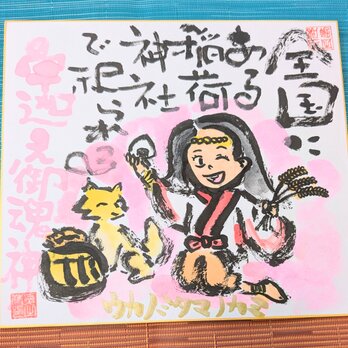 全国に
ある
稲荷
神社
で祀られる
宇迦之御魂神
ウカノミタマノカミ